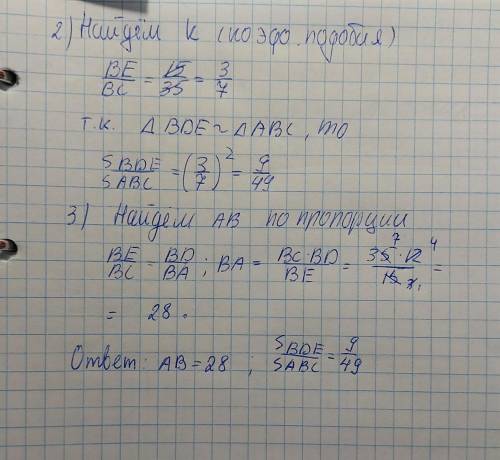 2) Найдём k (коэфф. подобия)
BE/BC = 15/35 = 3/7
т.к. △BDE ~ △ABC, то
S BDE/S ABC = (3/7)² = 9/49
3) Найдём AB по пропорции
BE/BC = BD/BA; BA = BC·BD/BE = 35·12/15 =
= 28.
Ответ: AB = 28; S BDE/S ABC = 9/49